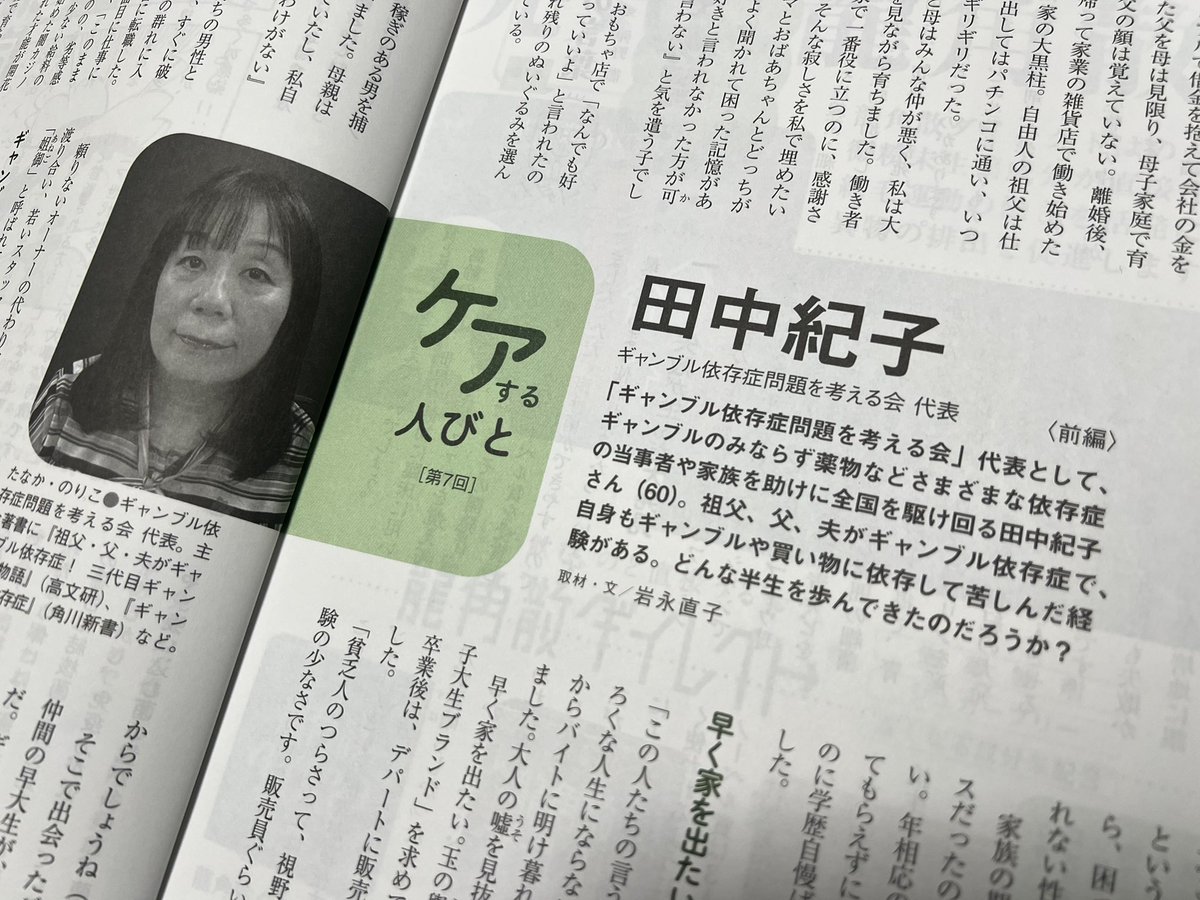 て借金を抱えて会社の金を
た父を母は見限り、母子家庭で育
父の顔は覚えていない。離婚後、
帰って家業の雑貨店で働き始めた
家の大黒柱。自由人の祖父は仕
出してはパチンコに通い、いつ
ギリギリだった。
と母はみんな仲が悪く、私は大
を見ながら育ちました。働き者
で一番役に立つのに、感謝さ
そんな寂しさを私で埋めたい
マとおばあちゃんとどっちが
よく聞かれて困った記憶があ
好きと言われなかった方が可
言わない」と気を遣う子でし
おもちゃ店で「なんでも好
っていいよ」と言われたの
れ残りのぬいぐるみを選ん
ている。
稼ぎのある男を捕
ました。母親は
ていたし、私自
わけがない』
ちの男性と
、すぐに破
の群れに人
に転職した。
頼りないオーナーの代わりに
渡り合い、若いスタッフ
「姐御」と呼ばれ
ギャン
ケアする
人びと
[第7回]
田中紀子
ギャンブル依存症問題を考える会 代表
〈前編〉
「ギャンブル依存症問題を考える会」代表として、
ギャンブルのみならず薬物などさまざまな依存症
の当事者や家族を助けに全国を駆け回る田中紀子
さん(60)。祖父、父、夫がギャンブル依存症で、
自身もギャンブルや買い物に依存して苦しんだ経
験がある。どんな半生を歩んできたのだろうか?
取材・文/岩永直子
たなか・のりこ●ギャンブル依
存症問題を考える会 代表。主
著書に『祖父・父・夫がギャ
ブル依存症! 三代目ギャン
物語』(高文研)、『ギャン
存症』(角川新書)など。
という
ら、困
れない性
家族の
スだったの
い。年相応の
てもらえずに
のに学歴自慢ば
した。
早く家を出たい
「この人たちの言う
ろくな人生にならな
からバイトに明け暮れ
ました。大人の嘘を見抜
早く家を出たい。玉の輿
子大生ブランド」を求めて
卒業後は、デパートに販売
した。
「貧乏人のつらさって、視野
験の少なさです。販売員ぐらい
からでしょうね(
そこで出会った
仲間の早大生が、
だ。